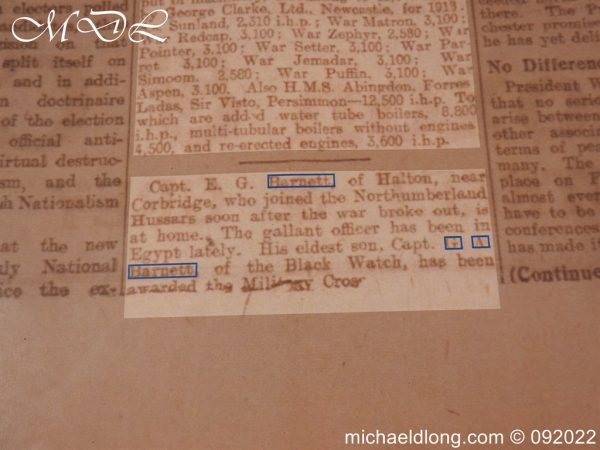 MDL
electers
split itself on
and in addi-
doctrinaire
of the election
official anti-
virtual destruc-
and the
Nationalism
at the new
National
the ex-
George Clarke, Ltd., Newcastle, for 1913:
2,310 i.h.p.; War Matron, 3,100;
Redcap, 3,100; War Zephyr, 2,580; War
Pointer, 3,100; War Setter, 3,100; War Par
ret, 3,100; War Jemadar, 3,100; War
Simoom, 2,580; War Puffin, 3,100; War
Aspen, 3,100. Also H.M.S. Abingdon, Forres
Ladas, Sir Visto, Persimmon—12,500 i.h.p. To
which are added water tube boilers, 8,800
i.h.p., multi-tubular boilers without engines
4,500, and re-erected engines, 3,600 i.h.p.
Capt. E. G. Barnett, of Halton, near
Corbridge, who joined the Northumberland
Hussars soon after the war broke out, is
at home. The gallant officer has been in
Egypt lately. His eldest son, Capt. G. A.
Barnett, of the Black Watch, has been
awarded the Military Cros
there. The
chester promise
he has yet deli
No Differenc
President W
that no serio
arise between
other associa
terms of peac
many. The
place on F
almost ever
have to be
conferences
has made i
(Continue
michaeldlong.com © 092022